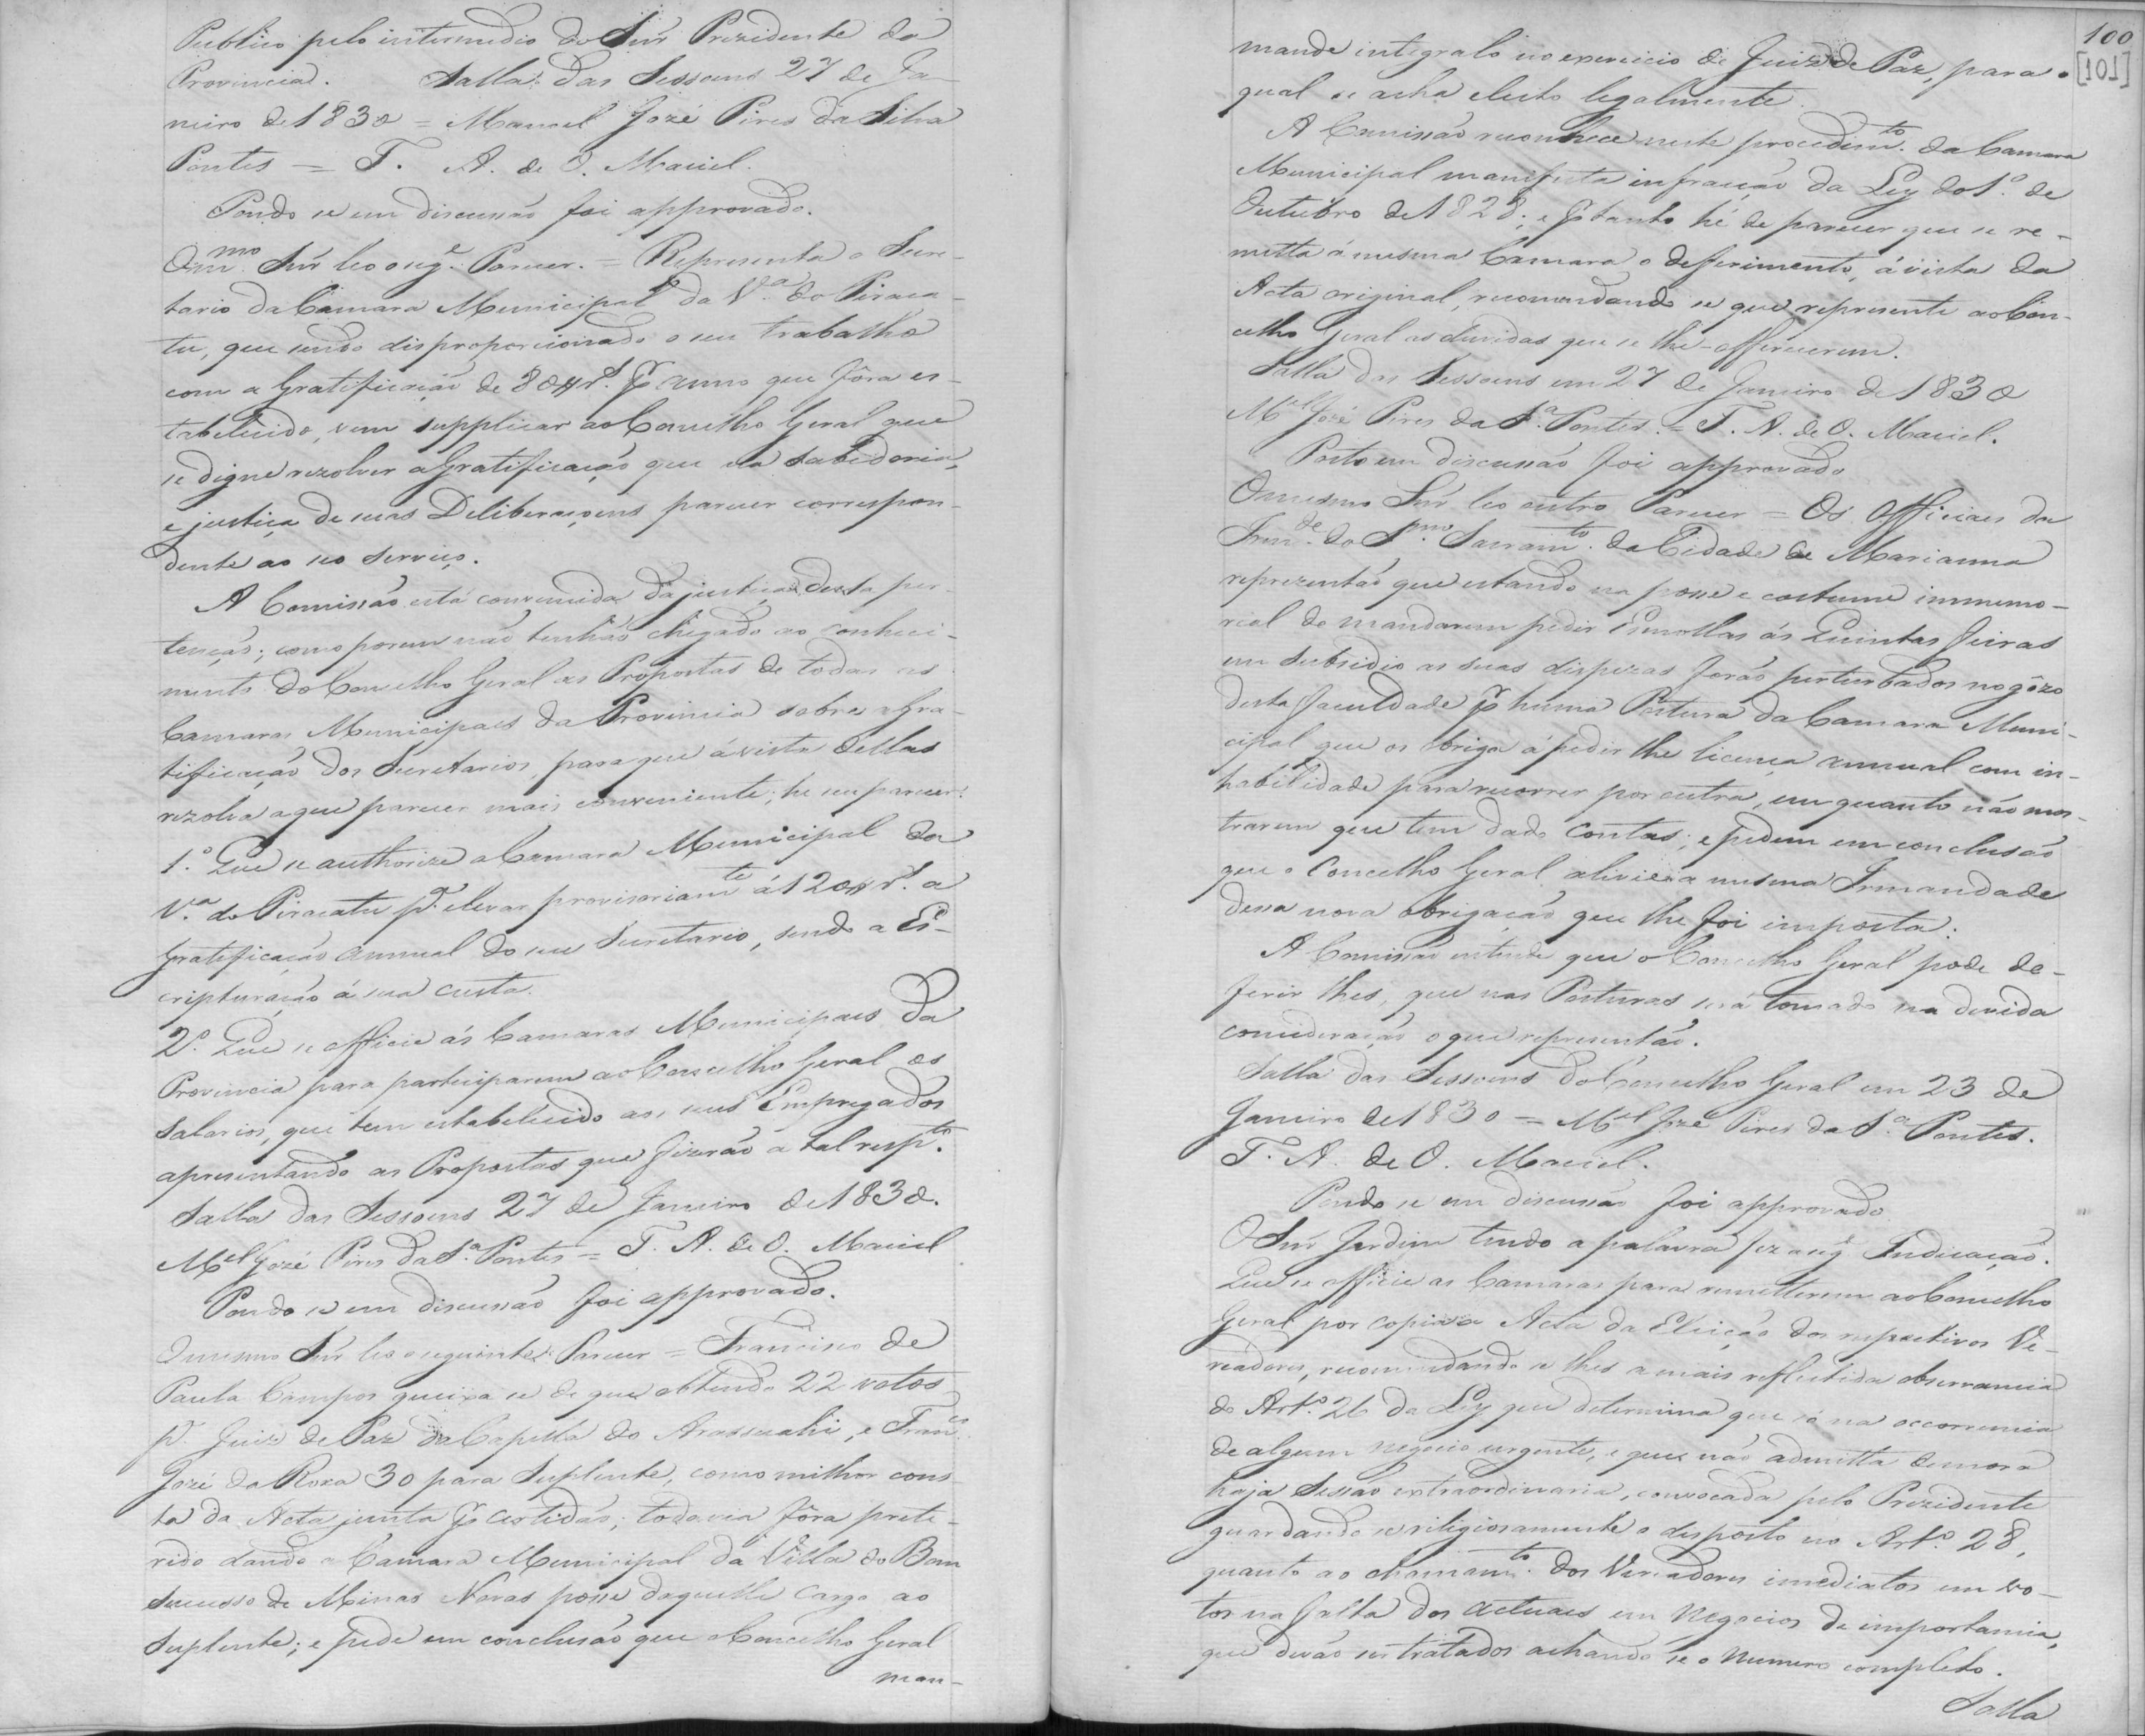 Publico pelo intermedio do Snr Prezidente da
Provincia. Salla das Sessoens 27 de Ja-
neiro de 1830 = Manoel Jozé Pires da Silva
Pontes = T. A. de O. Maciel.
Pondo se em discussão foi approvado.
O mmo. Snr leo o sege. Parecer. = Representa o Secre-
tario da Camara Municipal da Va. do Piraca-
tu, que sendo disproporcionado o seu trabalho
com a Gratificação de 80$rs. pr anno que fôra es-
tabelecido, vem supplicar ao Concelho Geral que
se digne rezolver a Gratificação que na Sabedoria,
e justiça de suas Deliberaçoens parecer correspon-
dente ao seo serviço.
A Comissão está convencida da justiça desta per-
tenção; como porem não tenhão chegado ao conheci-
mento do Concelho Geral as Propostas de todas as
Camaras Municipaes da Provincia sobre a Gra-
tificação dos Secretarios, para que á vista dellas
rezolva a que parecer mais conveniente, he seu parecer.
1.º Que se authorize a Camara Municipal da
Va. do Piracatu pa. elevar provisoriamte á 120$rs. a
Gratificação annual do seu Secretario, sendo a Es-
cripturação á sua custa.
2º. Que se officie ás Camaras Municipaes da
Provincia para participarem ao Concelho Geral os
Salarios, que tem estabelecido aos seus Empregados
apresentando as Propostas que fizerão a tal respto.
Salla das Sessoens 27 de Janeiro de 1830.
Mel Jozé Pires da Sa. Pontes = T. A. de O. Maciel
Pondo se em discussão foi approvado.
O mesmo Snr leo o seguinte Parecer = Francisco de
Paula Campos queixa se de que obtendo 22 votos
pa. Juiz de Paz da Capella do Arassuahi, e Franco.
Jozé da Roxa 30 para Suplente, como milhor cons-
ta da Acta junta pr certidão; todavia fôra prete-
rido dando a Camara Municipal da Villa do Bom
Sucesso de Minas Novas posse daquelle cargo ao
Suplente; e pede em conclusão que o Concelho Geral
man-
100
[101]
mande integralo no exercicio de Juiz de Paz, para o
qual se acha eleito legalmente.
A Comissão reconhece neste procedimto. da Camara
Municipal manifesta infracção da Ley do 1.º de
Outubro de 1828; e pr tanto hé de parecer que se re-
metta á mesma Camara o deferimento, á vista da
Acta original, recomendando se que represente ao Con-
celho Geral as duvidas que se lhe offerecerem.
Salla das Sessoens em 27 de Janeiro de 1830
Mel Jozé Pires da Sa. Pontes. = T. A. de O. Maciel.
Posto em discussão foi approvado
O mesmo Snr leo outro Parecer = Os Officiaes da
Irmde. do Smo. Sacramto. da Cidade de Marianna
reprezentão que estando na posse e costume immemo-
rial de mandarem pedir Esmollas ás Quintas feiras
em subsidio as suas dispezas forão perturbados no gôzo
desta faculdade pr huma Postura da Camara Muni-
cipal que os obriga á pedir lhe licença annual com in-
habilidade para recorrer por outra, em quanto não mos-
trarem que tem dado contas; e pedem em conclusão
que o Concelho Geral alivie a mesma Irmandade
dessa nova obrigação que lhe foi imposta.
A Comissão entende que o Concelho Geral pode de-
ferir lhes, que nas Posturas será tomado na devida
consideração o que representão.
Salla das Sessoens do Concelho Geral em 23 de
Janeiro de 1830 = Mel Jozé Pires da Sa. Pontes.
T. A. de O. Maciel.
Pondo se em discussão foi approvado
O Snr Jardim tendo a palavra fez a sege Indicação.
Que se officie as Camaras para remetterem ao Concelho
Geral por copia a Acta da Eleição dos respectivos Ve-
readores, recomendando se lhes a mais reflectida observancia
do Arto. 26 da Ley que determina que só na occorrencia
de algum negocio urgente, e que não admitta demora
haja Sessão extraordinaria, convocada pelo Prezidente
guardando se religiosamente o disposto no Arto. 28,
quanto ao chamamto. dos Vereadores imediatos em vo-
tos na falta dos actuaes em Negocios de importancia,
que devão ser tratados achando se o Numero completo.
Salla